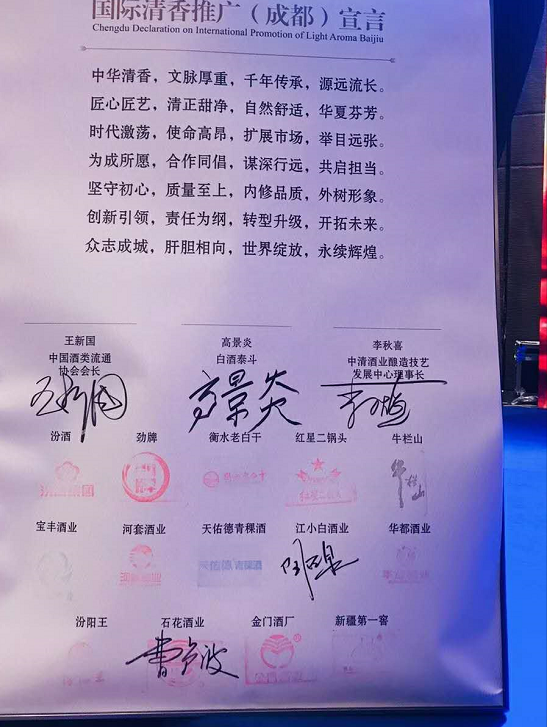 国际清香推广（成都）宣言
Chengdu Declaration on International Promotion of Light Aroma Baijiu
中华清香，文脉厚重，千年传承，源远流长。
匠心匠艺，清正甜净，自然舒适，华夏芬芳。
时代激荡，使命高昂，扩展市场，举目远张。
为成所愿，合作同倡，谋深行远，共启担当。
坚守初心，质量至上，内修品质，外树形象。
创新引领，责任为纲，转型升级，开拓未来。
众志成城，肝胆相向，世界绽放，永续辉煌。
王新国 高景炎 李秋喜
中国酒类流通 白酒泰斗 中清酒业酿造技艺
协会会长 发展中心理事长
王新国 高景炎 李秋喜
汾酒 劲牌 衡水老白干 红星二锅头 牛栏山
牛栏山
宝丰酒业 河套酒业 天佑德青稞酒 江小白酒业 华都酒业
天佑德 青稞酒
汾阳王 石花酒业 金门酒厂 新疆第一窖
曹卢波